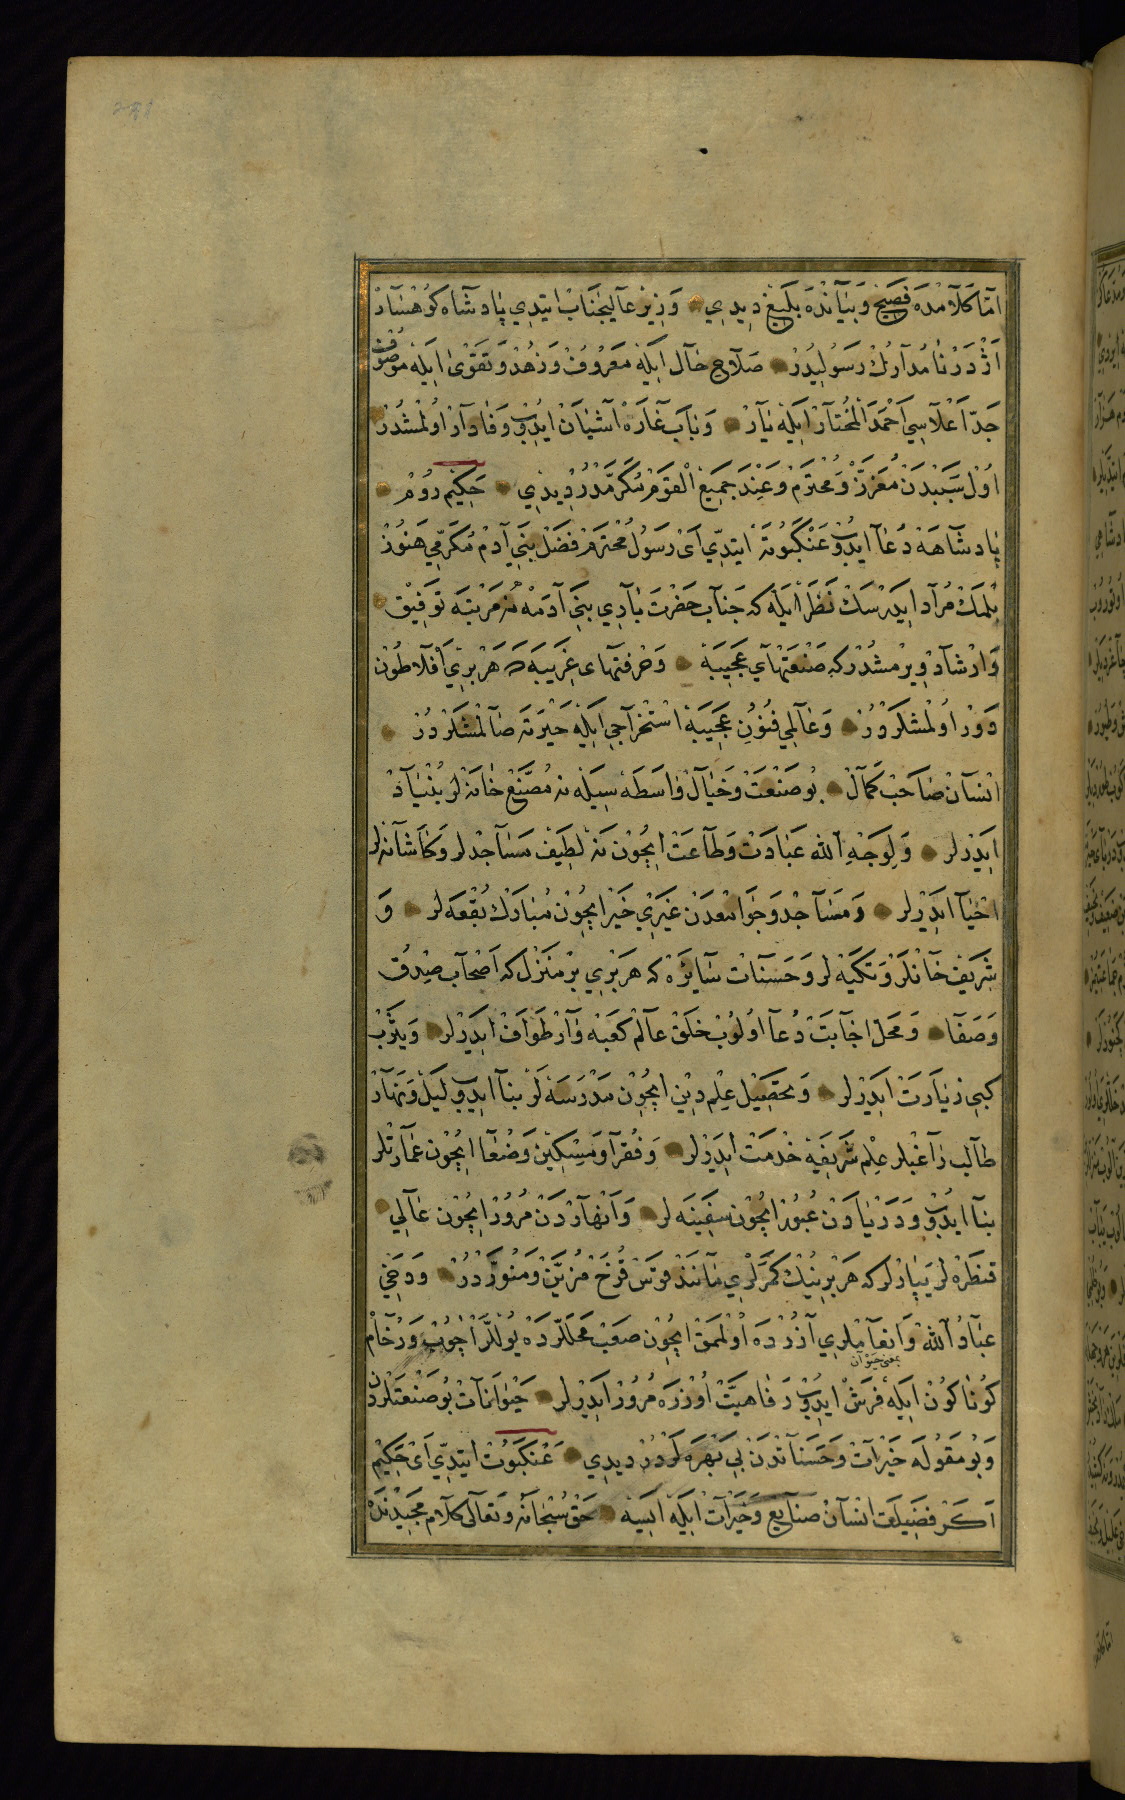 امّا كلامده فصيح و بيانده بليغ ديدي وزير عاليجناب ايتدي پادشاه كوهساد
اژدرنامدارك رسوليدر صلاح حال ايله معروف و زهد و تقوى ايله موصوف
جدّ اعلاسي احمد المختار ايله يار و باب غاره آشيان ايدوب وفادار اولمشدر
اول سببدن معزز و محترم و عند جميع القوم مكرمدر ديدي حكيم روم
پادشاهه دعا ايدوب عنكبوته ايتدي اى رسول محترم فضل بني آدم مكرمي هنوز
بلمك مراد ايدرسك نظر ايله كه جناب حضرت باري بني آدمه نه مرتبه توفيق
و ارشاد ويرمشدر كه صنعتهاي عجيبه و حرفتهاى غريبه ده هر بري افلاطون
دور اولمشلردر و عالمي فنون عجيبه استخراجي ايله حيرته صالمشلردر
انسان صاحب كمال بو صنعت و خيال واسطه سيله نه مصنع خانه لر بنياد
ايدرلر و لوجه الله عبادت و طاعت ايچون نه لطيف مساجدلر و كاشانه لر
احيا ايدرلر و مساجد و جوامعدن غيري خير ايچون مبارك بقعه لر و
شريف خانلر و تكيه لر و حسنات سايره كه هر بري بر منزل كه اصحاب صدق
و صفا و محل اجابت دعا اولوب خلق عالم كعبه وار طواف ايدرلر و يثرب
كبي زيارت ايدرلر و تحصيل علم دين ايچون مدرسه لر بنا ايدوب ليل و نهار
طالب و راغبلر علم شريفه خدمت ايدرلر و فقرا و مسكين و ضعفا ايچون عمارتلر
بنا ايدوب و دريادن عبور ايچون سفينه لر و انهاردن مرور ايچون عالي
قنطره لر يپارلر كه هر برينك كمرلري مانند قوس قزح مزين و منوردر و دخي
عباد الله و انعاملري آزرده اولممق ايچون صعب محللرده يوللر اچوب و رخام
بمعنى حيوان
كوناكون ايله فرش ايدوب رفاهيت اوزره مرور ايدرلر حيوانات بو صنعتلردن
و بو مقوله خيرات و حسناتدن بي بهره لردر ديدي عنكبوت ايتدي اى حكيم
اكر فضيلت انسان صنايع و خيرات ايله ايسه حق سبحانه و تعالى كلام مجيدنده